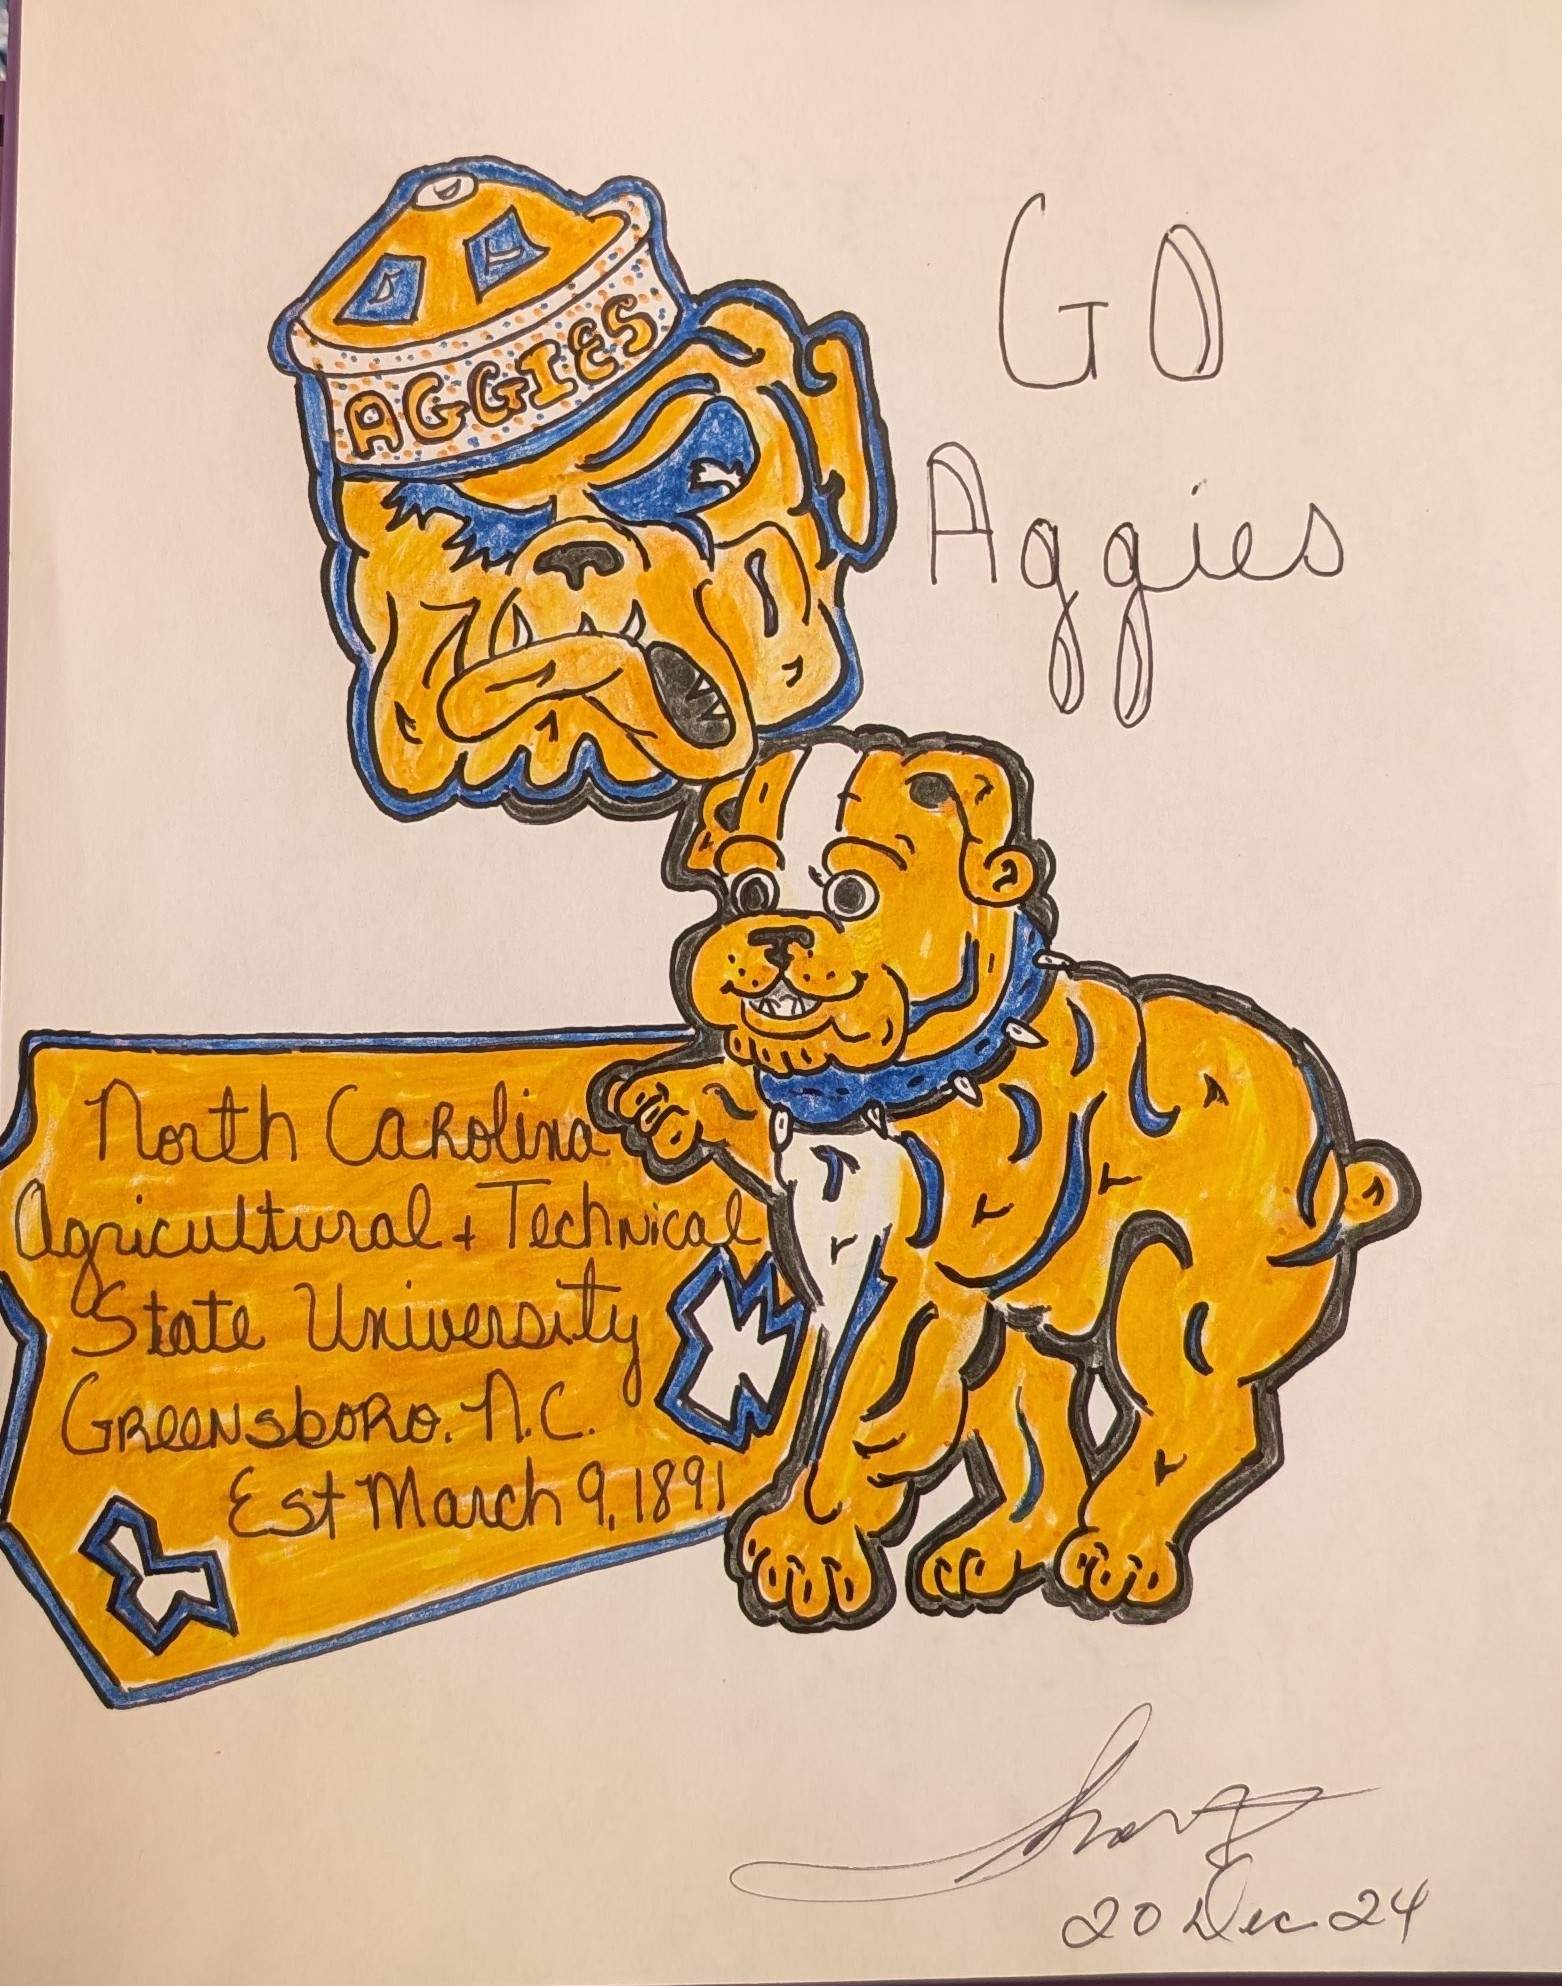 AGGIES
GO
Aggies
North Carolina
Agricultural + Technical
State University
Greensboro, N.C.
Est March 9, 1891
20 Dec 24